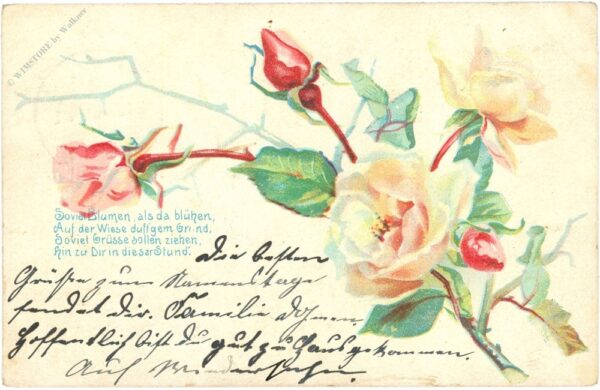 © WIMSTORE by Walkner
Soviel Blumen, als da blühen,
Auf der Wiese duft'gem Grund,
Soviel Grüsse sollen ziehen,
Hin zu Dir in dieser Stund.
Die besten
Grüße zum Namenstage
sendet dir. Familie
Hoffentlich bist du gut zu Haus gekommen.
Auf Wiedersehn.